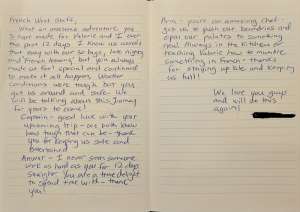 French West staff,
What an awesome adventure you
3 have made for Valerie and I over
the past 12 days. I know we weren't
that easy with our 3 boys, late nights
and "French teasing" but you always
made us feel special and continued
to make it all happen. Weather
conditions were tough but you
got us around and safe. We
will be talking about this journey
for years to come!
Captain - good luck with your
upcoming trip - we both know
how tough that can be - thank
you for keeping us safe and
entertained
Amour - I never seen someone
work as hard as you for 12 days
straight. You are a true delight
to spend time with - thank
you!
Ana - you're an amazing chef -
got us to push our boundries and
open our palates to something
new. Always in the kitchen or
teaching Valerie how to mumble
something in French - thanks
for staying up late and keeping
us full!
We love you guys
and will do this
again!